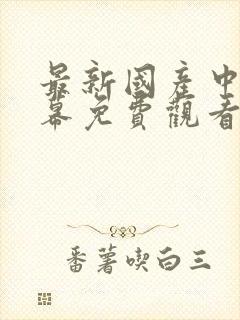 最新國產中
幕免費觀看
番薯喫白三